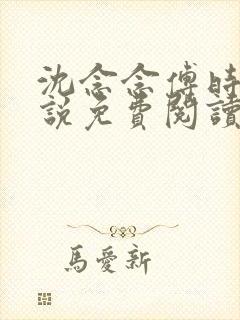 沈念念傅時
說免費閱讀
馬愛新